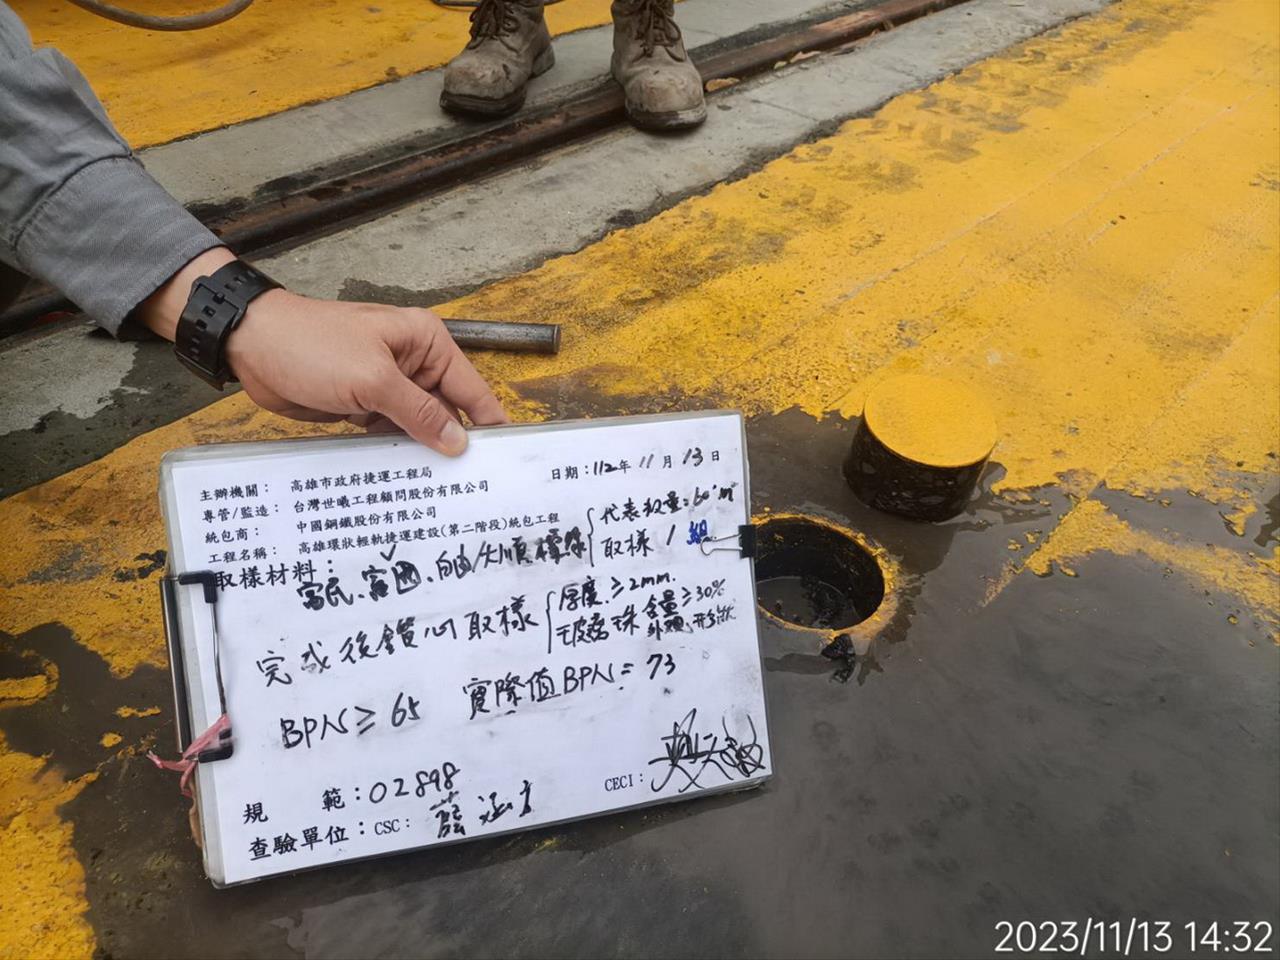 主辦機關： 高雄市政府捷運工程局 日期：112年 11 月 13 日
專管/監造： 台灣世曦工程顧問股份有限公司
統包商： 中國鋼鐵股份有限公司
工程名稱： 高雄環狀輕軌捷運建設(第二階段)統包工程
取樣材料：富民、富國、自由/大順標線
代表數量：60 m²
取樣 1 組
完成後鑽心取樣
厚度≥2mm.
玻璃珠含量≥30%
外觀、形狀
BPN≥65 實際值BPN=73
規 範：02898
查驗單位：CSC： CECI：
2023/11/13 14:32